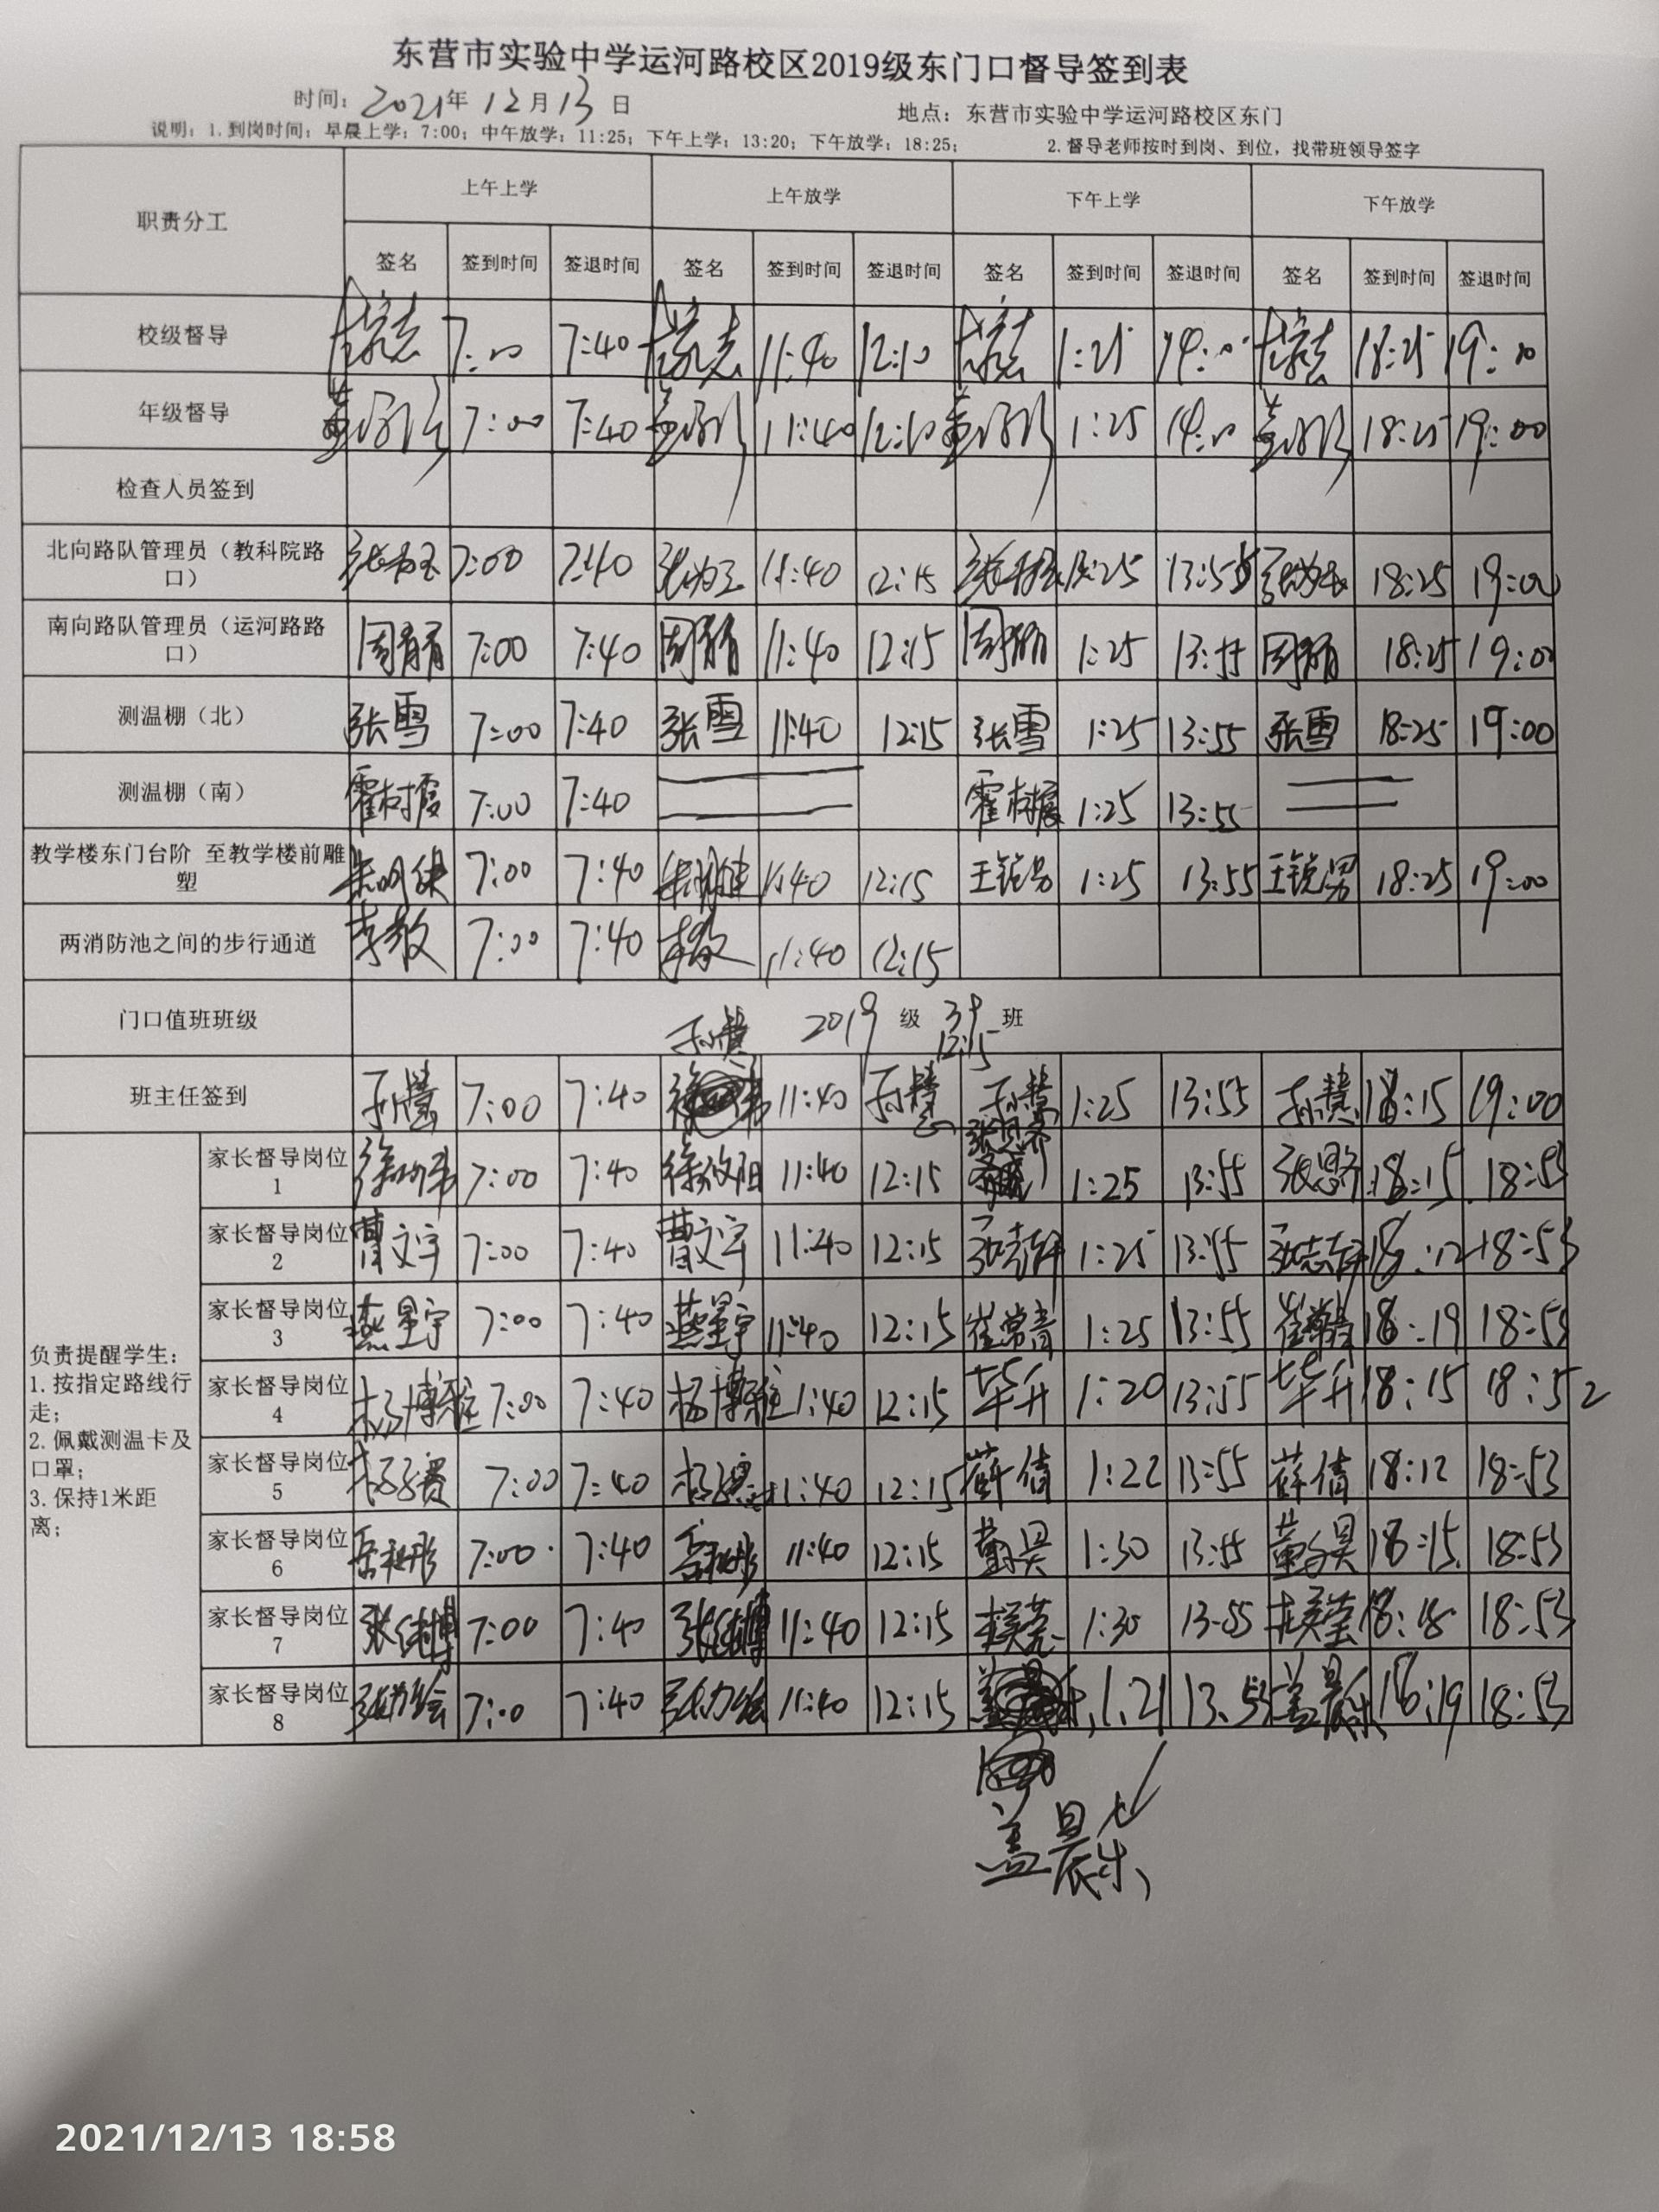 东营市实验中学运河路校区2019级东门口督导签到表
时间：2021年 12月 13日 地点：东营市实验中学运河路校区东门
说明：1.到岗时间：早晨上学：7:00；中午放学：11:25；下午上学：13:20；下午放学：18:25； 2.督导老师按时到岗、到位，找带班领导签字
职责分工 上午上学 上午放学 下午上学 下午放学
签名 签到时间 签退时间 签名 签到时间 签退时间 签名 签到时间 签退时间 签名 签到时间 签退时间
校级督导 7:00 7:40 11:40 12:10 1:25 14:00 18:25 19:00
年级督导 7:00 7:40 11:40 12:10 1:25 14:00 18:25 19:00
检查人员签到
北向路队管理员（教科院路
口） 7:00 7:40 11:40 12:15 13:25 13:55 18:25 19:00
南向路队管理员（运河路路
口） 7:00 7:40 11:40 12:15 1:25 13:55 18:25 19:00
测温棚（北） 张雪 7:00 7:40 张雪 11:40 12:15 张雪 1:25 13:55 张雪 18:25 19:00
测温棚（南） 霍树霞 7:00 7:40 霍树霞 1:25 13:55
教学楼东门台阶 至教学楼前雕
塑 7:00 7:40 11:40 12:15 王锐男 1:25 13:55 王锐男 18:25 19:00
两消防池之间的步行通道 李敬 7:00 7:40 李敬 11:40 12:15
门口值班班级 孙慧 2019 级 39 班
12:15
班主任签到 孙慧 7:00 7:40 11:40 孙慧 孙慧 1:25 13:55 孙慧 18:15 19:00
家长督导岗位
1 7:00 7:40 11:40 12:15 1:25 13:55 18:15 18:53
家长督导岗位
2 曹文宇 7:00 7:40 曹文宇 11:40 12:15 1:25 13:55 18:12 18:53
家长督导岗位
3 燕星宇 7:00 7:40 燕星宇 11:40 12:15 崔常青 1:25 13:55 崔常青 18:19 18:53
负责提醒学生：
1.按指定路线行
走；
2.佩戴测温卡及
口罩；
3.保持1米距
离；
家长督导岗位
4 7:00 7:40 11:40 12:15 毕升 1:20 13:55 毕升 18:15 18:52
家长督导岗位
5 7:00 7:40 11:40 12:15 薛倩 1:22 13:55 薛倩 18:12 18:53
家长督导岗位
6 7:00 7:40 11:40 12:15 1:30 13:55 18:15 18:53
家长督导岗位
7 7:00 7:40 11:40 12:15 1:30 13:55 18:18 18:53
家长督导岗位
8 7:00 7:40 11:40 12:15 1.21 13.53 盖晨乐 18:19 18:53
盖晨乐
2021/12/13 18:58